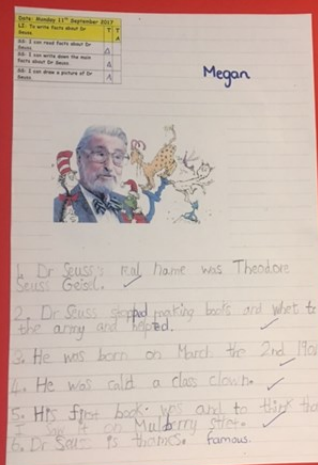 Date: Monday 11th September 2017
LI: To write facts about Dr Seuss.
T T A
SS: I can read facts about Dr Seuss.
SS: I can write down the main facts about Dr Seuss.
SS: I can draw a picture of Dr Seuss.
Megan
1. Dr Seuss's real name was Theodore
Seuss Geisel.
2. Dr Seuss stopped making books and whet to
the army and helped.
3. He was born on March the 2nd
4. He was calld a class clown.
5. His first book was and to think
I saw it on Mulberry stret.
6. Dr Seuss is thames. famous.